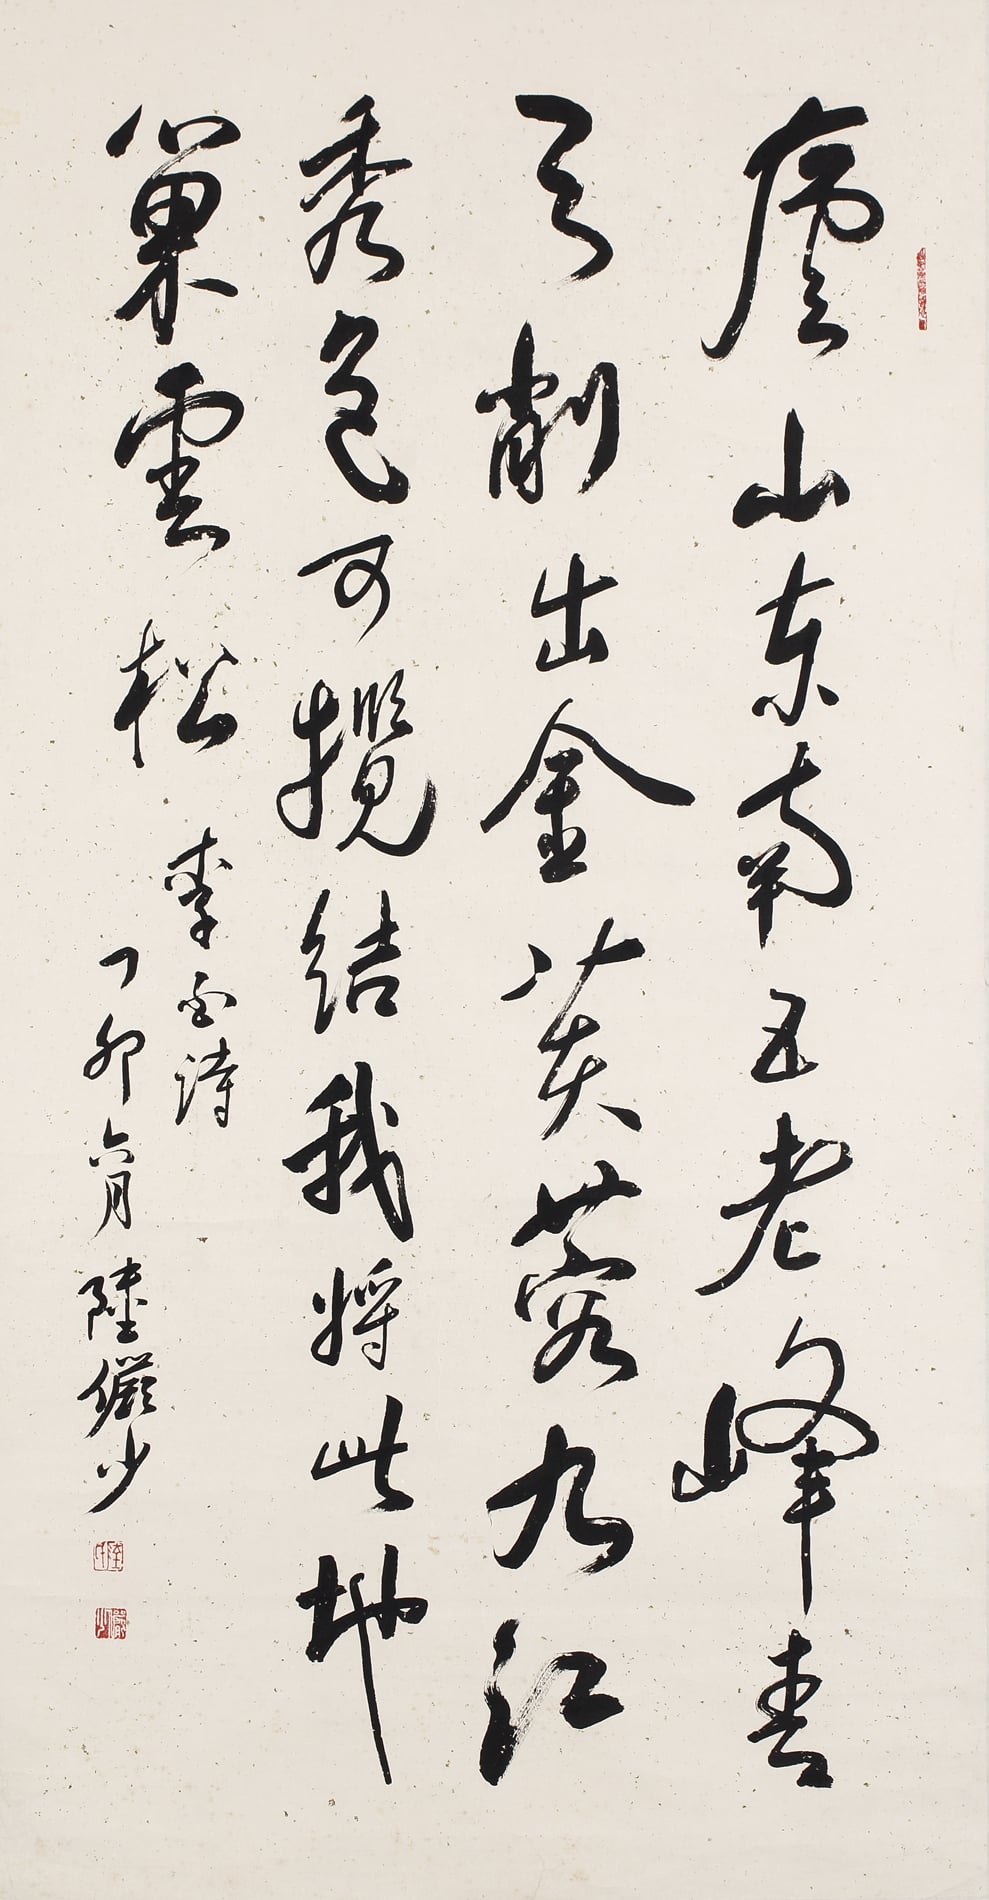 廬山東南五老峰青
天削出金芙蓉九江
秀色可攬結我將此地
巢雲松
李白詩
丁卯六月陸儼少